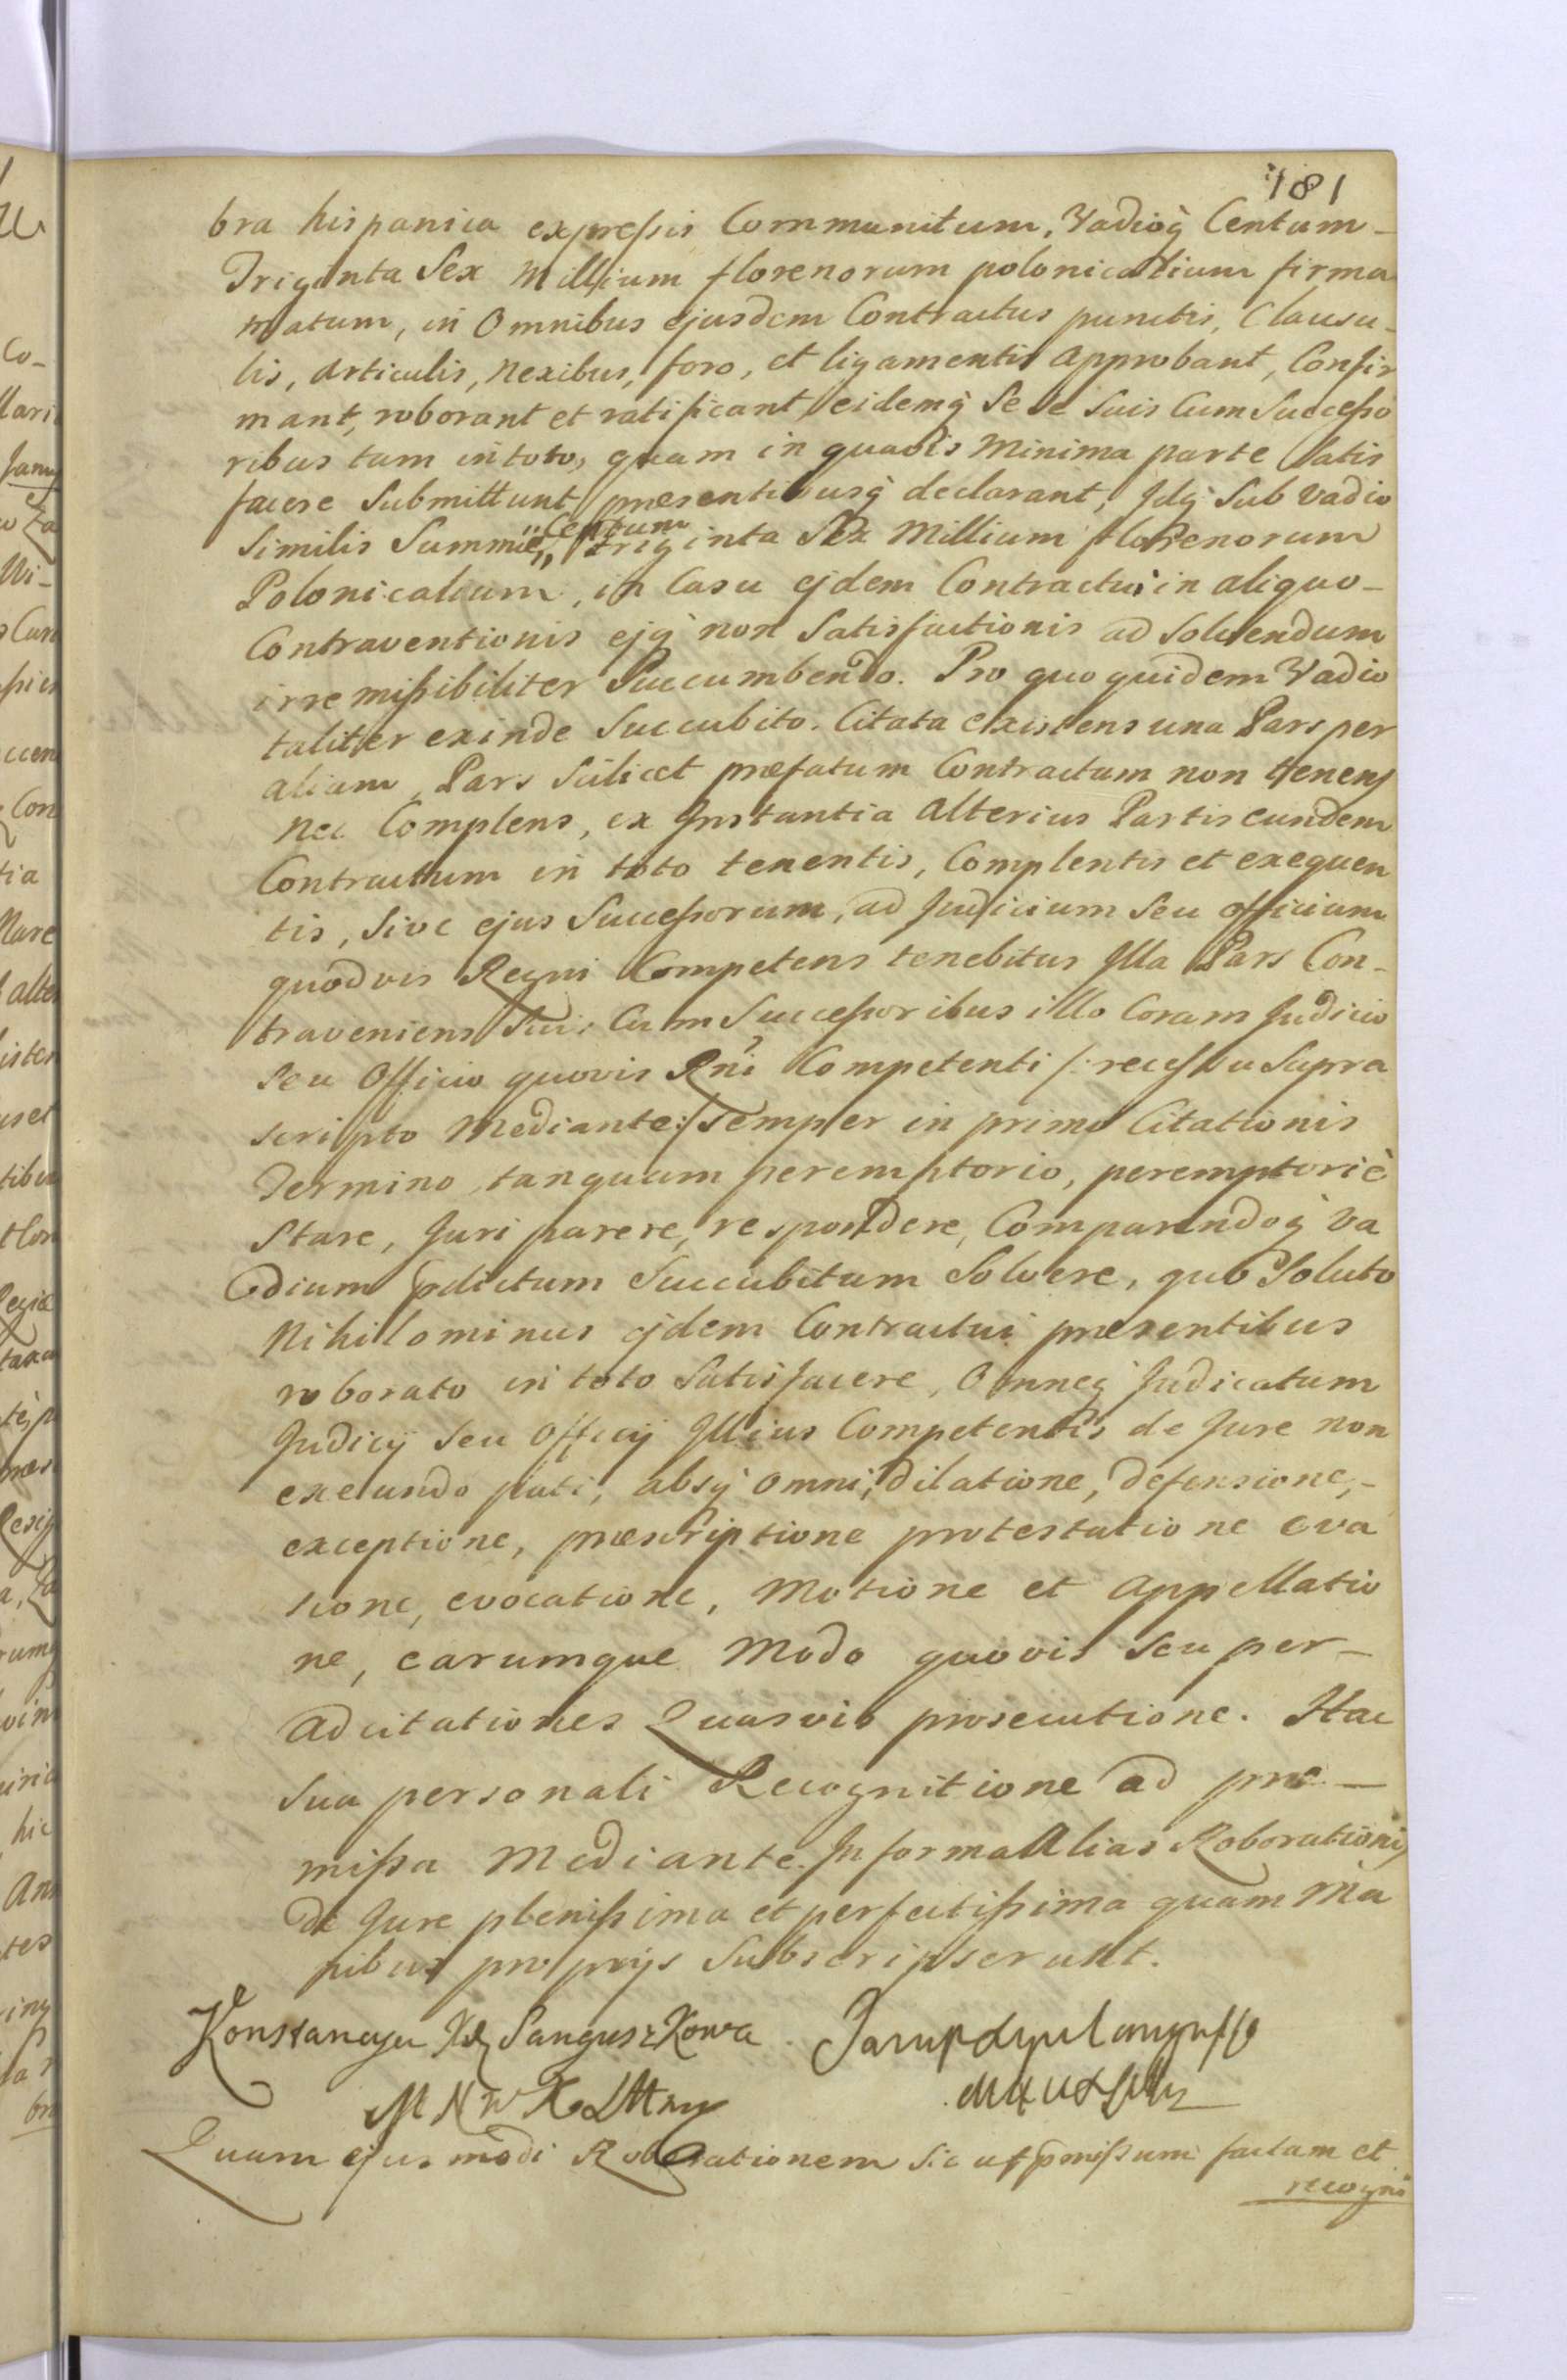 181
bra hispanica expressis Communitum, Vadioq̀ Centum-
Triginta Sex Millium florenorum polonicalium firma
matum, in Omnibus ejusdem Contractus punctis, Clausu-
lis, articulis, nexibus, foro, et ligamentis approbant, Confir
mant, roborant et ratificant, eidemq̀ Se se Suis Cum Successo
ribus tam in toto, quam in quavis Minima parte Satis
facere Submittunt, præsentibusq̀ declarant, Idq̀ Sub Vadio
Similis Summæ, „Centum„ triginta Sex Millium florenorum
Polonicalium, in Casu ejdem Contractui in aliquo-
Contraventionis ejq̀ non Satisfactionis ad Solvendum
irremissibiliter Succumbendo. Pro quo quidem Vadio
taliter exinde Succubito. Citata existens una Pars per
aliam, Pars Scilicet præfatum Contractum non tenens
nec Complens, ex Instantia alterius Partis eundem
Contractum in toto tenentis, Complentis et exequen
tis, Sive ejus Successorum, ad Judicium Seu officium
quodvis Regni Competens tenebitur Illa Pars Con-
traveniens Suis Cum Successoribus illo Coram Judicio
Seu Officio quovis Rni Competenti /: recessu Supra
scripto Mediante:/ Semper in primo Citationis
Termino tanquam peremptorio, peremptoriè
Stare, Juri parere, respondere, Comparendoq̀ va
dium pdictum Succubitum Solvere, quo Soluto
Nihilominus ejdem Contractui præsentibus
roborato in toto Satisfacere, Omneq̀ Judicatum
Judicij Seu Officij Illius Competentis de Jure non
exeundo pati, absq̀ omni, dilatione, defensione,-
exceptione, præscriptione protestatione eva
sione, evocatione, Motione et appellatio
ne, earumque Modo quovis Seu per-
adcitationes Quasvis prosecutione. Hac
Sua personali Recognitione ad præ-
missa Mediante. In forma Alias Roborationis
de Jure plenissima et perfectissima quam Ma
nibus proprijs Subscripserunt.
Konstancya Xżą Sanguszkowa
M N W X L Mrny
Quam ejusmodi Roborationem Sic ut pmissum factam et
recogni